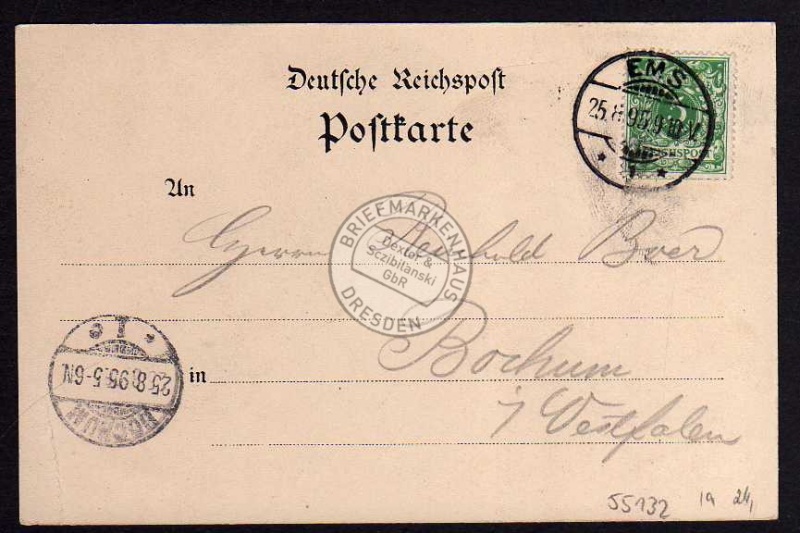 Deutsche Reichspost
Postkarte
EMS
25.8.95.9-10V.
* 1 *
An
Herrn Reinhold Boer
BRIEFMARKENHAUS
Dexter &
Sczibilanski
GbR
DRESDEN
in
Bochum
i/Westfalen
BOCHUM
25.8.95.5-6N.
* 1 c
55132 1a 24,